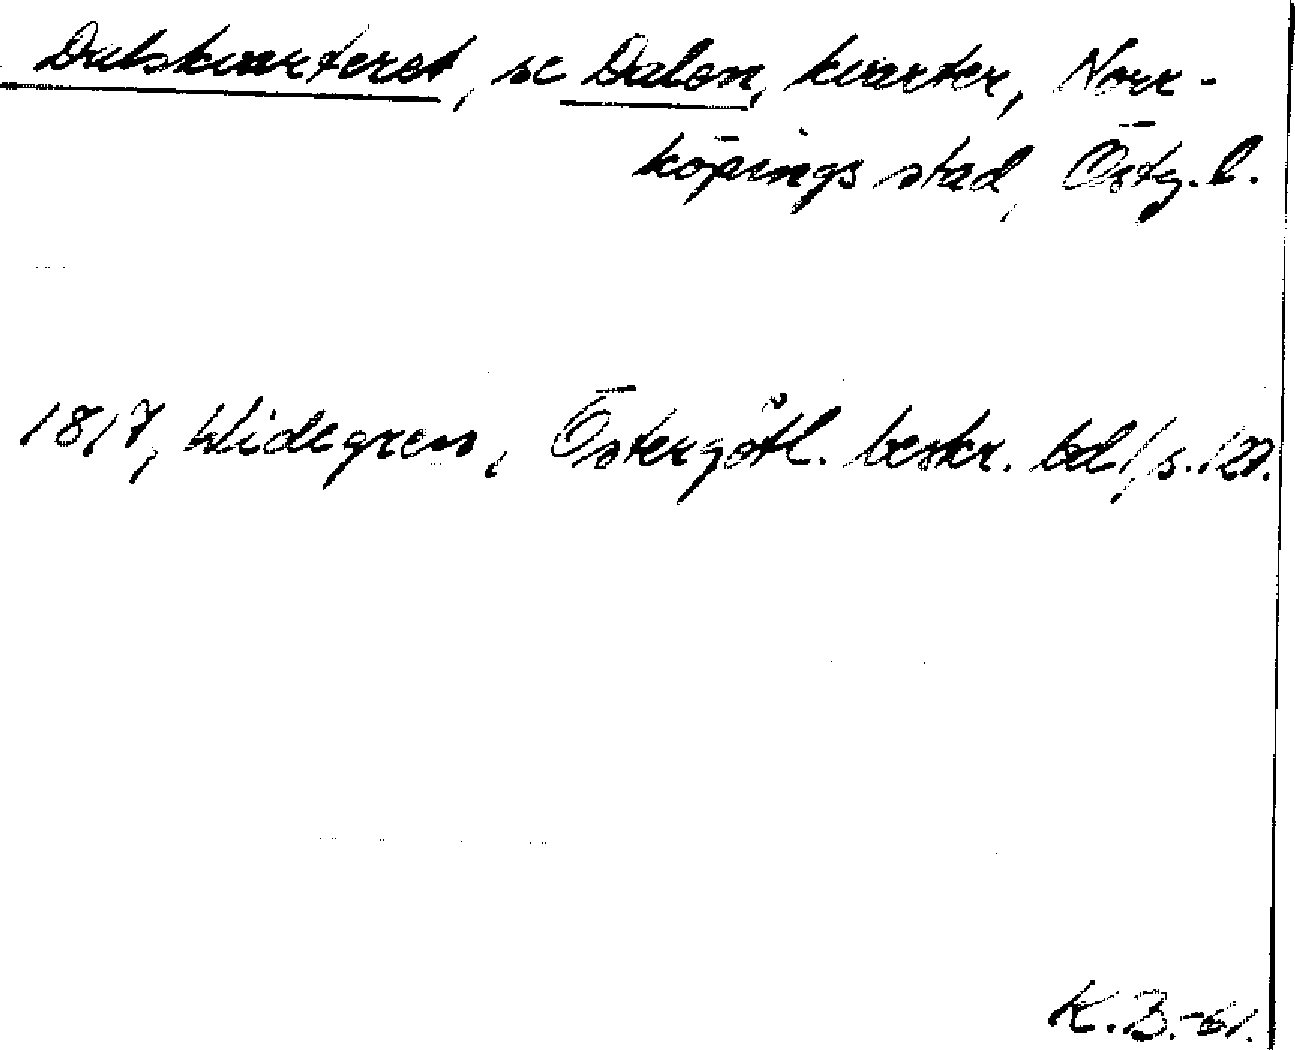 Dalskvarteret, se Dalen, kvarter, Norr-
köpings stad, Östg. l.
1817, Widegren, Östergötl. beskr. bd 1, s. 127.
K.B.-61.